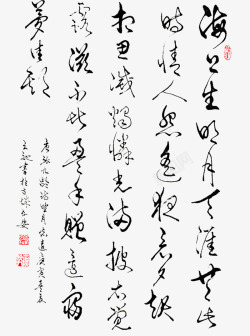 海上生明月天涯共此
時情人怨遙夜竟夕起
相思滅燭憐光滿披衣覺
露滋不堪盈手贈還寢
夢佳期
唐張九齡詩望月懷遠庚寅孟夏